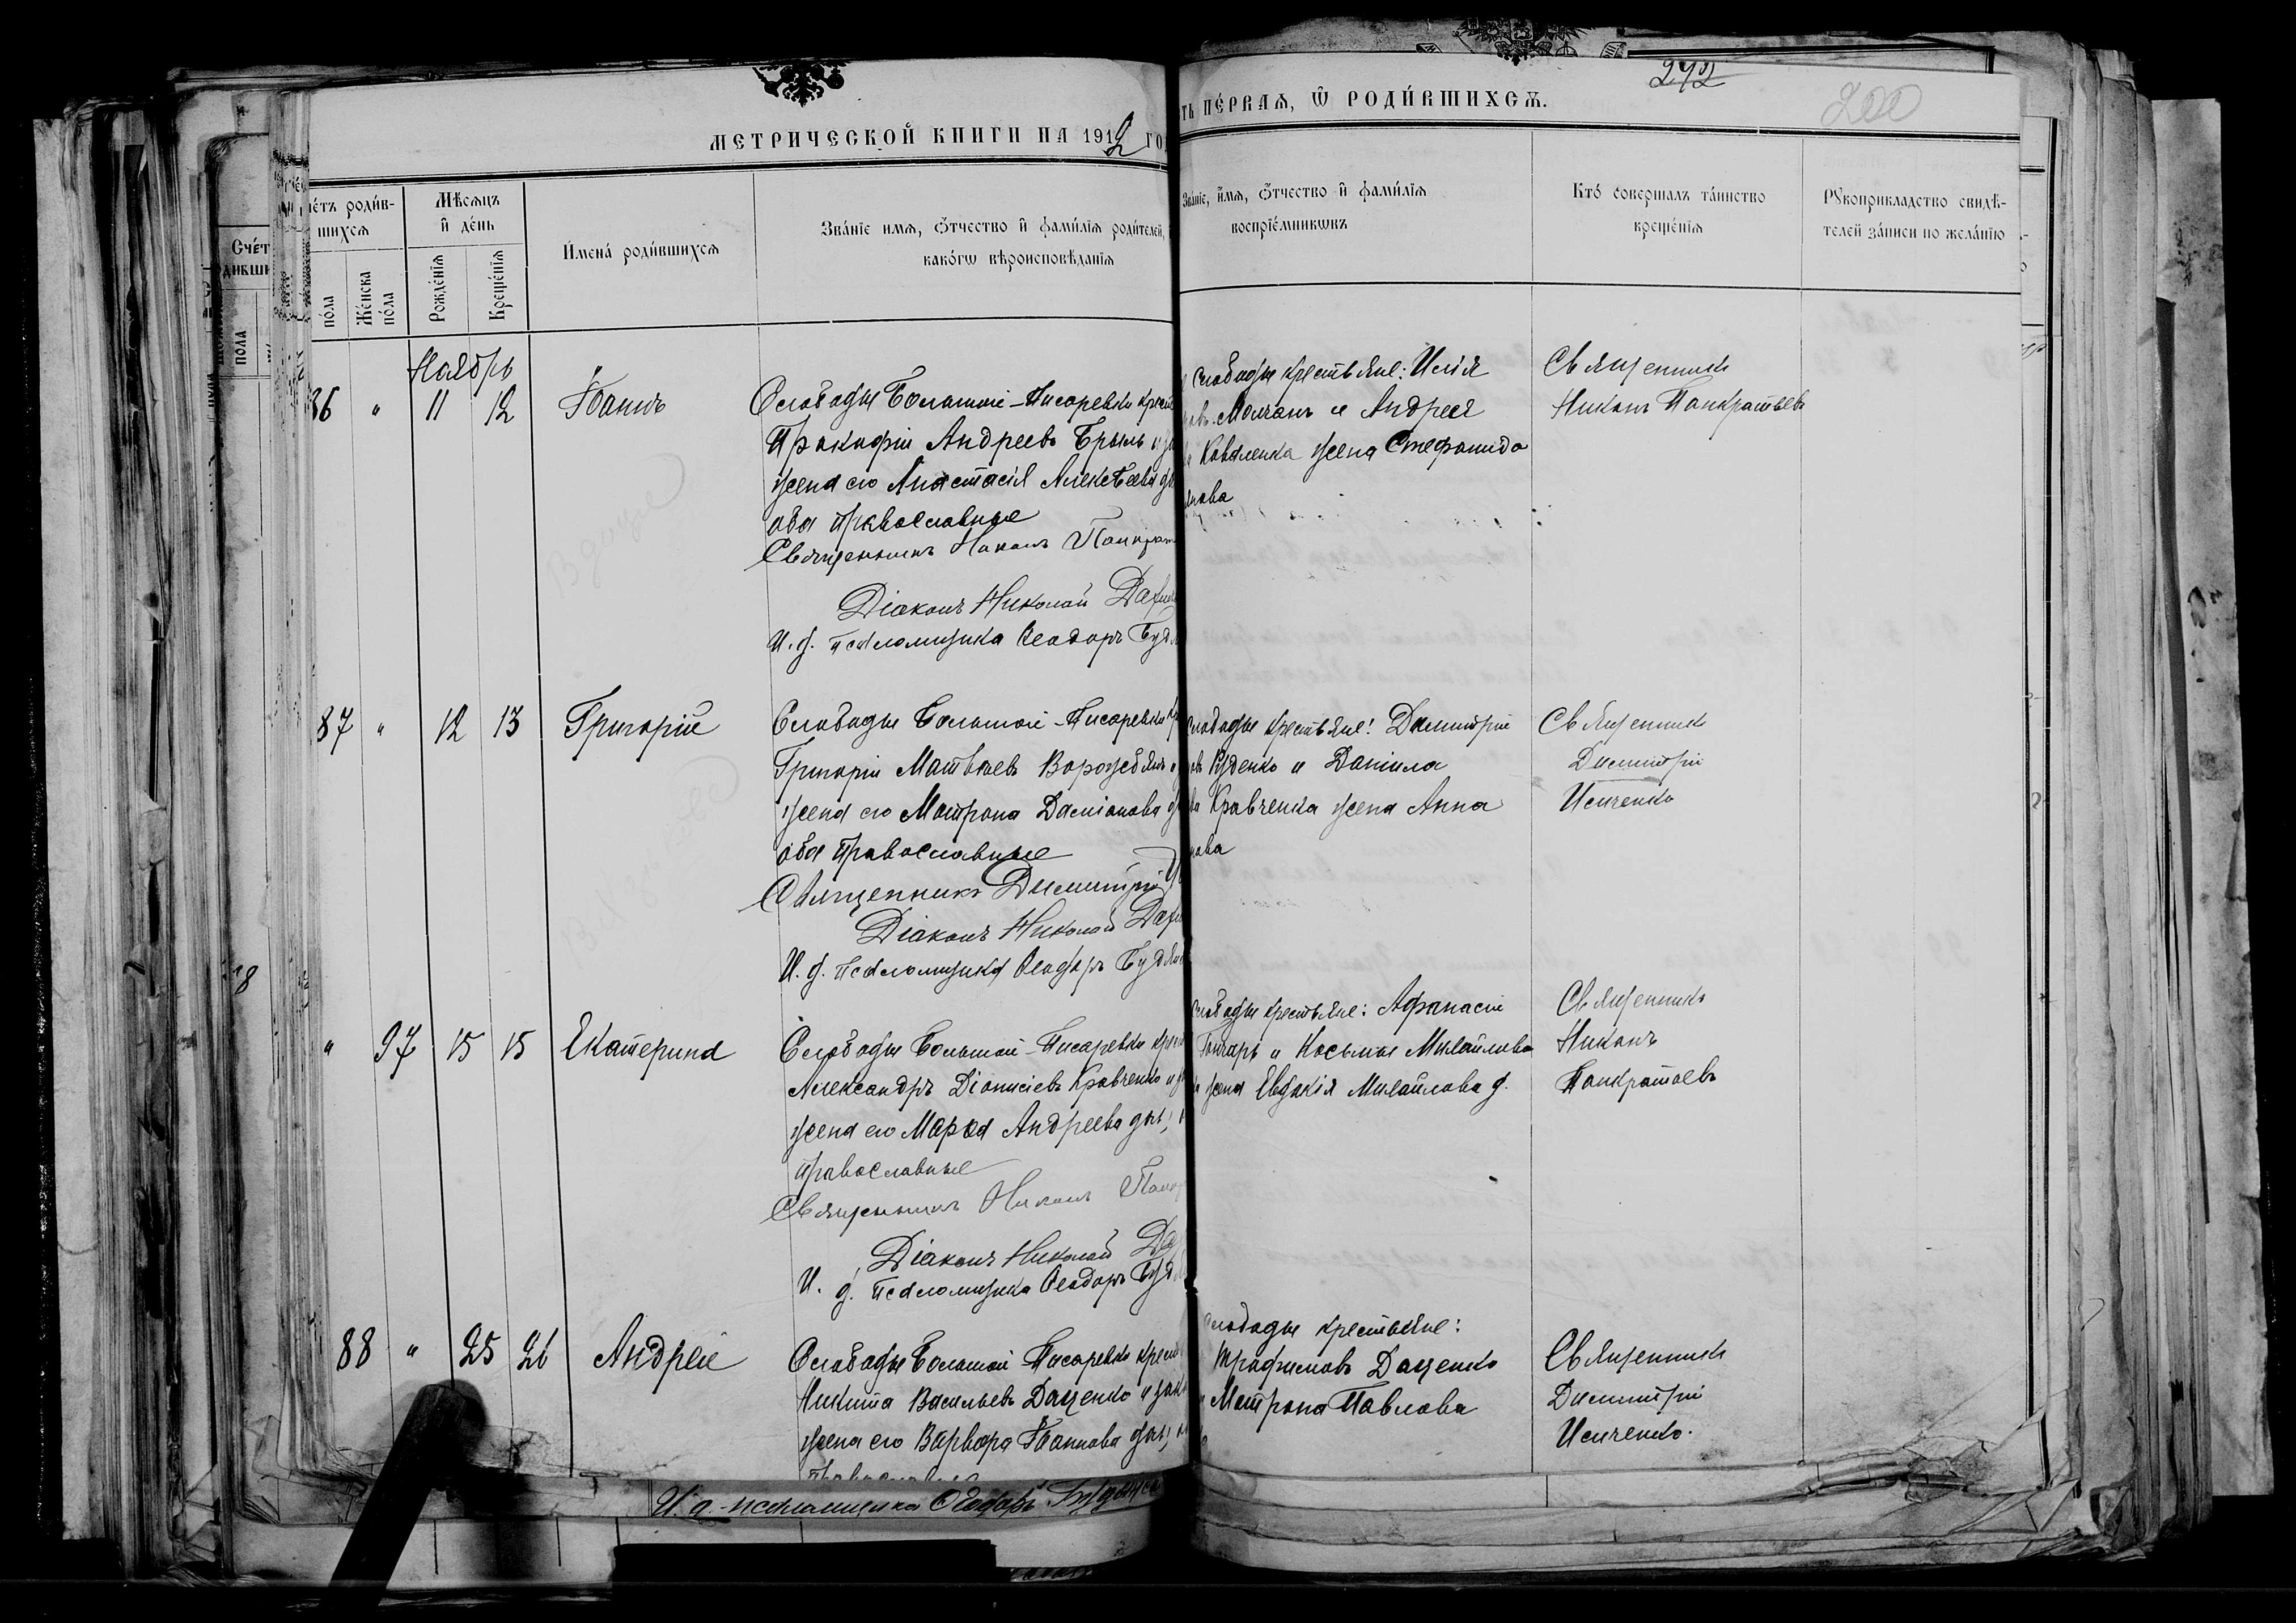 МЕТРИЧЕСКОЙ КНИГИ НА 1912 ГО
ТЬ ПЕ́РВАЯ, Ѿ РОДИ́ВШИХСѦ.
272
200
че́тъ роди́в-
шихсѧ
по́ла
Же́нска
по́ла
Мѣсѧцъ
и҆ де́нь
Рожде́нїѧ
Креще́нїѧ
И҆мена̀ роди́вшихсѧ
Зва́нїе имѧ, ѻ҆́тчество и҆ фами́лїѧ роди́телей,
како́гѡ вѣроисповѣ́данїѧ
Зва́нїе, и҆́мѧ, ѻ҆́тчество и҆ фами́лїѧ
воспрїе́мникѡвъ
Кто̀ соверша́лъ та́инство
креще́нїѧ
Рꙋкоприкладство свидѣ́-
телей за́писи по жела́нїю
Счёт
пола
Ноябрь
86 " 11 12 Іоаннъ
Слободы Большой-Писаревки крест
Прокофій Андреевъ Брыль и за
жена его Анастасія Алексѣева
оба православные
Священникъ Никонъ Панкрат
Діаконъ Николай
И. д. псаломщика Ѳеодоръ Буд
слободы крестьяне: Илія
Молчанъ и Андрея
Коваленка жена Стефанида
нова
Священникъ
Никонъ Панкратьевъ
87 " 12 13 Григорій
Слободы Большой-Писаревки кр
Григорій Матвѣевъ Ворожбянъ и
жена его Матрона Даміанова
оба православные
Священникъ Димитрій
Діаконъ Николай
И. д. псаломщика Ѳеодоръ Будян
слободы крестьяне: Димитрій
Руденко и Даніила
Кравченка жена Анна
нова
Священникъ
Димитрій
Исиченко
" 97 15 15 Екатерина
Слободы Большой-Писаревки крест
Александръ Діонисіевъ Кравченко и з
жена его Марѳа Андреева оба,
православные
Священникъ Никонъ Панкр
Діаконъ Николай
И. д. псаломщика Ѳеодоръ Буд
слободы крестьяне: Афанасій
Гончаръ и Косьмы Михайлова
жена Евдокія Михайлова д.
Священникъ
Никонъ
Панкратьевъ
88 " 25 26 Андрей
Слободы Большой Писаревки крест
Никита Васильевъ Даценко и зак
жена его Варвара Іоаннова оба,
православные
слободы крестьяне:
Трофимовъ Даценко
и Матрона Павлова
Священникъ
Димитрій
Исиченко.
И. д. псаломщика Ѳеодоръ Будянск